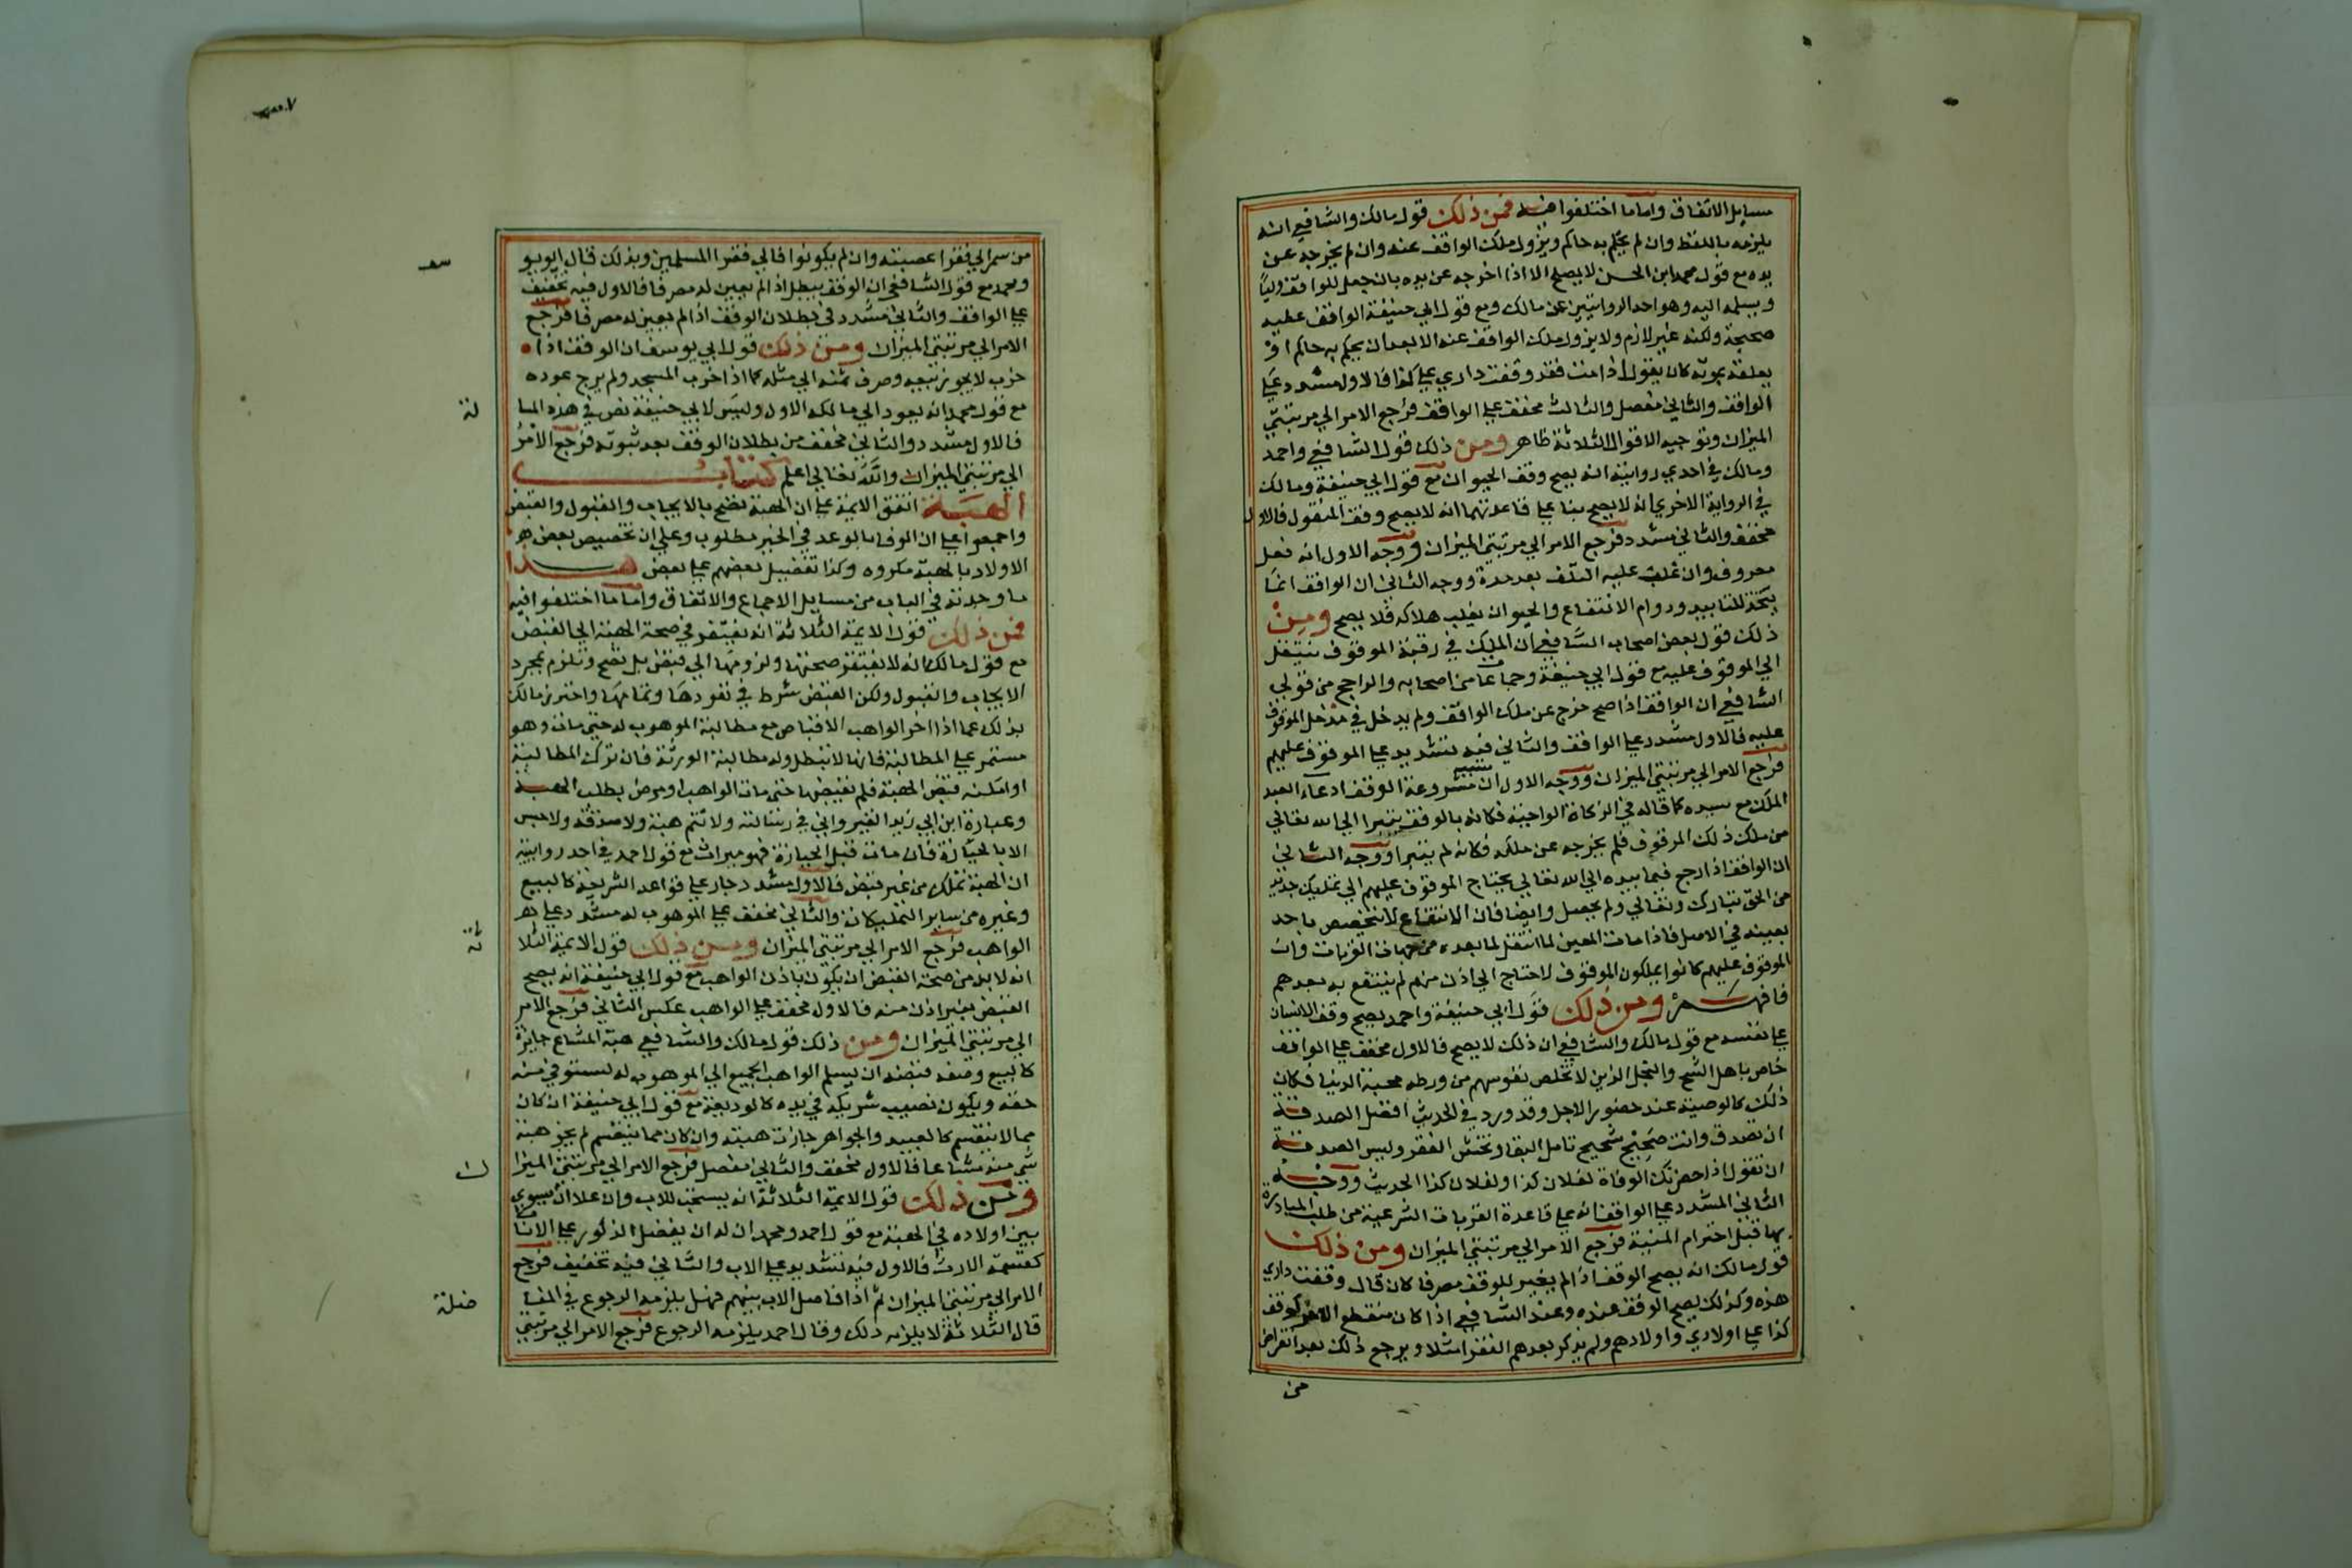 مسايل الاتفاق واما ما اختلفوا فيه فمن ذلك قول مالك والشافعي انه
يلزمه باللفظ وان لم يحكم به حاكم ويزول ملك الواقف عنه وان لم يخرجه عن
يده مع قول محمد ابن الحسن لا يصح الا اذا اخرجه عن يده بان جعل للواقف وليا
ويسلمه اليه وهو احد الروايتين عن مالك ومع قول ابي حنيفة الوقف عطيه
صحيحة ولكنه غير لازم ولا يزول ملك الواقف عنه الا بعد ان يحكم به حاكم او
يعلقه بموته كان يقول اذا مت فقد وقفت داري علي كذا فالاول مشدد علي
الواقف والثاني مفصل والثالث مخفف علي الواقف فرجع الامر الي مرتبتي
الميزان وتوجيه الاقوال الثلاثة ظاهر ومن ذلك قول الشافعي واحمد
ومالك في احدي روايتيه انه يصح وقف الحيوان مع قول ابي حنيفة ومالك
في الرواية الاخري انه لا يصح بنا علي قاعدتهما انه لا يصح وقف المنقول فالاول
مخفف والثاني مشدد فرجع الامر الي مرتبتي الميزان ووجه الاول انه فعل
معروف وان غلب عليه التلف بعد مدة ووجه الثاني ان الوقف انما
يتخذ للتابيد ودوام الانتفاع والحيوان يغلب هلاكه فلا يصح ومن
ذلك قول بعض اصحاب الشافعي ان الملك في رقبة الموقوف ينتقل
الي الموقوف عليه مع قول ابي حنيفة وجماعة من اصحابه والراجح من قولي
الشافعي ان الوقف اذا صح خرج عن ملك الواقف ولم يدخل في مدخل الموقوف
عليه فالاول مشدد علي الواقف والثاني فيه تشديد علي الموقوف عليهم
فرجع الامر الي مرتبتي الميزان ووجه الاول ان مشروعة الوقف ادعاء العبد
الملك مع سيده كما قاله في الزكاة الواجبة فكانه بالوقف تبرا الي الله تعالي
من ملك ذلك الموقوف فلم يخرجه عن ملكه فكانه لم يتبرا ووجه الثاني
ان الواقف اذا رجع فيما بيده الي الله تعالي يحتاج الموقوف عليهم الي تمليك جديد
من الحق تبارك وتعالي ولم يحصل وايضا فان الانتفاع لا يتخصص باحد
بعينه في الاصل فاذا مات المعين لما انتقل لما بعده من جهات القربات وان
الموقوف عليهم كانوا يملكون الموقوف لاحتاج الي اذن منهم لم ينتفع به بعدهم
فافهم ومن ذلك قول ابي حنيفة واحمد يصح وقف الانسان
علي نفسه مع قول مالك والشافعي ان ذلك لا يصح فالاول مخفف علي الواقف
خاص باهل الشح والبخل الذين لا تخلص نفوسهم من ورطة محبة الدنيا فكان
ذلك كالوصية عند حضور الاجل وقد ورد في الحديث افضل الصدقة
ان تصدق وانت صحيح شحيح تامل البقا وتخشي الفقر وليس الصدقة
ان تقول اذا حضرتك الوفاة لفلان كذا ولفلان كذا الحديث ووجه
الثاني المشدد علي الواقف انه علي قاعدة القربات الشرعية من طلب المبادرة
بها قبل اخترام المنية فرجع الامر الي مرتبتي الميزان ومن ذلك
قول مالك انه يصح الوقف اذا لم يغير للوقف مصرفا كان قال وقفت داري
هذه وكذلك يصح الوقف عنده وعند الشافعي اذا كان منقطع الاخر كوقف
كذا علي اولادي واولادهم ولم يذكر بعدهم الفقرا مثلا ويرجع ذلك بعد انقراض
من
من سمر الي فقرا عصبته وان لم يكونوا فالي فقرا المسلمين وبذلك قال ابو يو سف
ومحمد مع قول الشافعي ان الوقف يبطل اذا لم يعين له مصرفا فالاول فيه تخفيف
علي الواقف والثاني مشدد في بطلان الوقف اذا لم يعين له مصرفا فرجع
الامر الي مرتبتي الميزان ومن ذلك قول ابي يوسف ان الوقف اذا
خرب لا يجوز بيعه وصرف ثمنه الي مثله كما اذا خرب المسجد ولم يرج عوده
مع قول محمد انه يعود الي مالكه الاول وليس لابي حنيفة نص في هذه المسا لة
فالاول مشدد والثاني مخفف من بطلان الوقف بعد ثبوته فرجع الامر
الي مرتبتي الميزان والله تعالي اعلم كتاب
الهبة اتفق الايمة علي ان الهبة تصح بالايجاب والقبول والقبض
واجمعوا علي ان الوفا بالوعد في الخير مطلوب وعلي ان تخصيص بعض
الاولاد بالهبة مكروه وكذا تفضيل بعضهم علي بعض هذا
ما وجدته في الباب من مسايل الاجماع والاتفاق واما ما اختلفوا فيه
فمن ذلك قول الايمة الثلاثة انه تفتقر في صحة الهبة الي القبض
مع قول مالك انه لا يفتقر صحتها ولزومها الي قبض بل تصح وتلزم بمجرد
الايجاب والقبول ولكن القبض شرط في نفوذها وتمامها واحترز مالك
بذلك عما اذا اخر الواهب الاقباض مع مطالبة الموهوب له حتي مات وهو
مستمر علي المطالبة فانها لا تبطل وله مطالبة الورثة فان ترك المطالبة
او امكنه قبض الهبة فلم يقبضها حتي مات الواهب او مرض بطلت الهبة
وعبارة ابن ابي زيد القيرواني في رسالته ولا تتم هبة ولا صدقة ولا حبس
الا بالحيازة فان مات قبل الحيازة فهو ميراث مع قول احمد في احد روايتيه
ان الهبة تملك من غير قبض فالاول مشدد جار علي قواعد الشريعة كالبيع
وغيره من ساير التمليكات والثاني مخفف علي الموهوب له مشدد علي
الواهب فرجع الامر الي مرتبتي الميزان ومن ذلك قول الايمة الثلا ثة
انه لا بد من صحة القبض ان يكون باذن الواهب مع قول ابي حنيفة انه يصح
القبض بغير اذن منه فالاول مخفف علي الواهب عكس الثاني فرجع الامر
الي مرتبتي الميزان ومن ذلك قول مالك والشافعي هبة المشاع جايزة
كالبيع وصفة قبضه ان يسلم الواهب الجميع الي الموهوب له ليستوفي منه
حقه ويكون نصيب شريكه في يده كالوديعة مع قول ابي حنيفة ان كان
مما لا ينقسم كالعبيد والجواهر جازت هبته وان كان مما ينقسم لم يجز هبة
شي منه مشاعا فالاول مخفف والثاني مفصل فرجع الامر الي مرتبتي الميزا ن
ومن ذلك قول الايمة الثلاثة انه يستحب للاب وان علا ان يسوي
بين اولاده في الهبة مع قول احمد ومحمد ان له ان يفضل الذكور علي الاناث
كقسمة الارث فالاول فيه تشديد علي الاب والثاني فيه تخفيف فرجع
الامر الي مرتبتي الميزان ثم اذا فاضل الاب بينهم فهل يلزمه الرجوع في المفا ضلة
قال الثلاثة لا يلزمه ذلك وقال احمد يلزمه الرجوع فرجع الامر الي مرتبتي